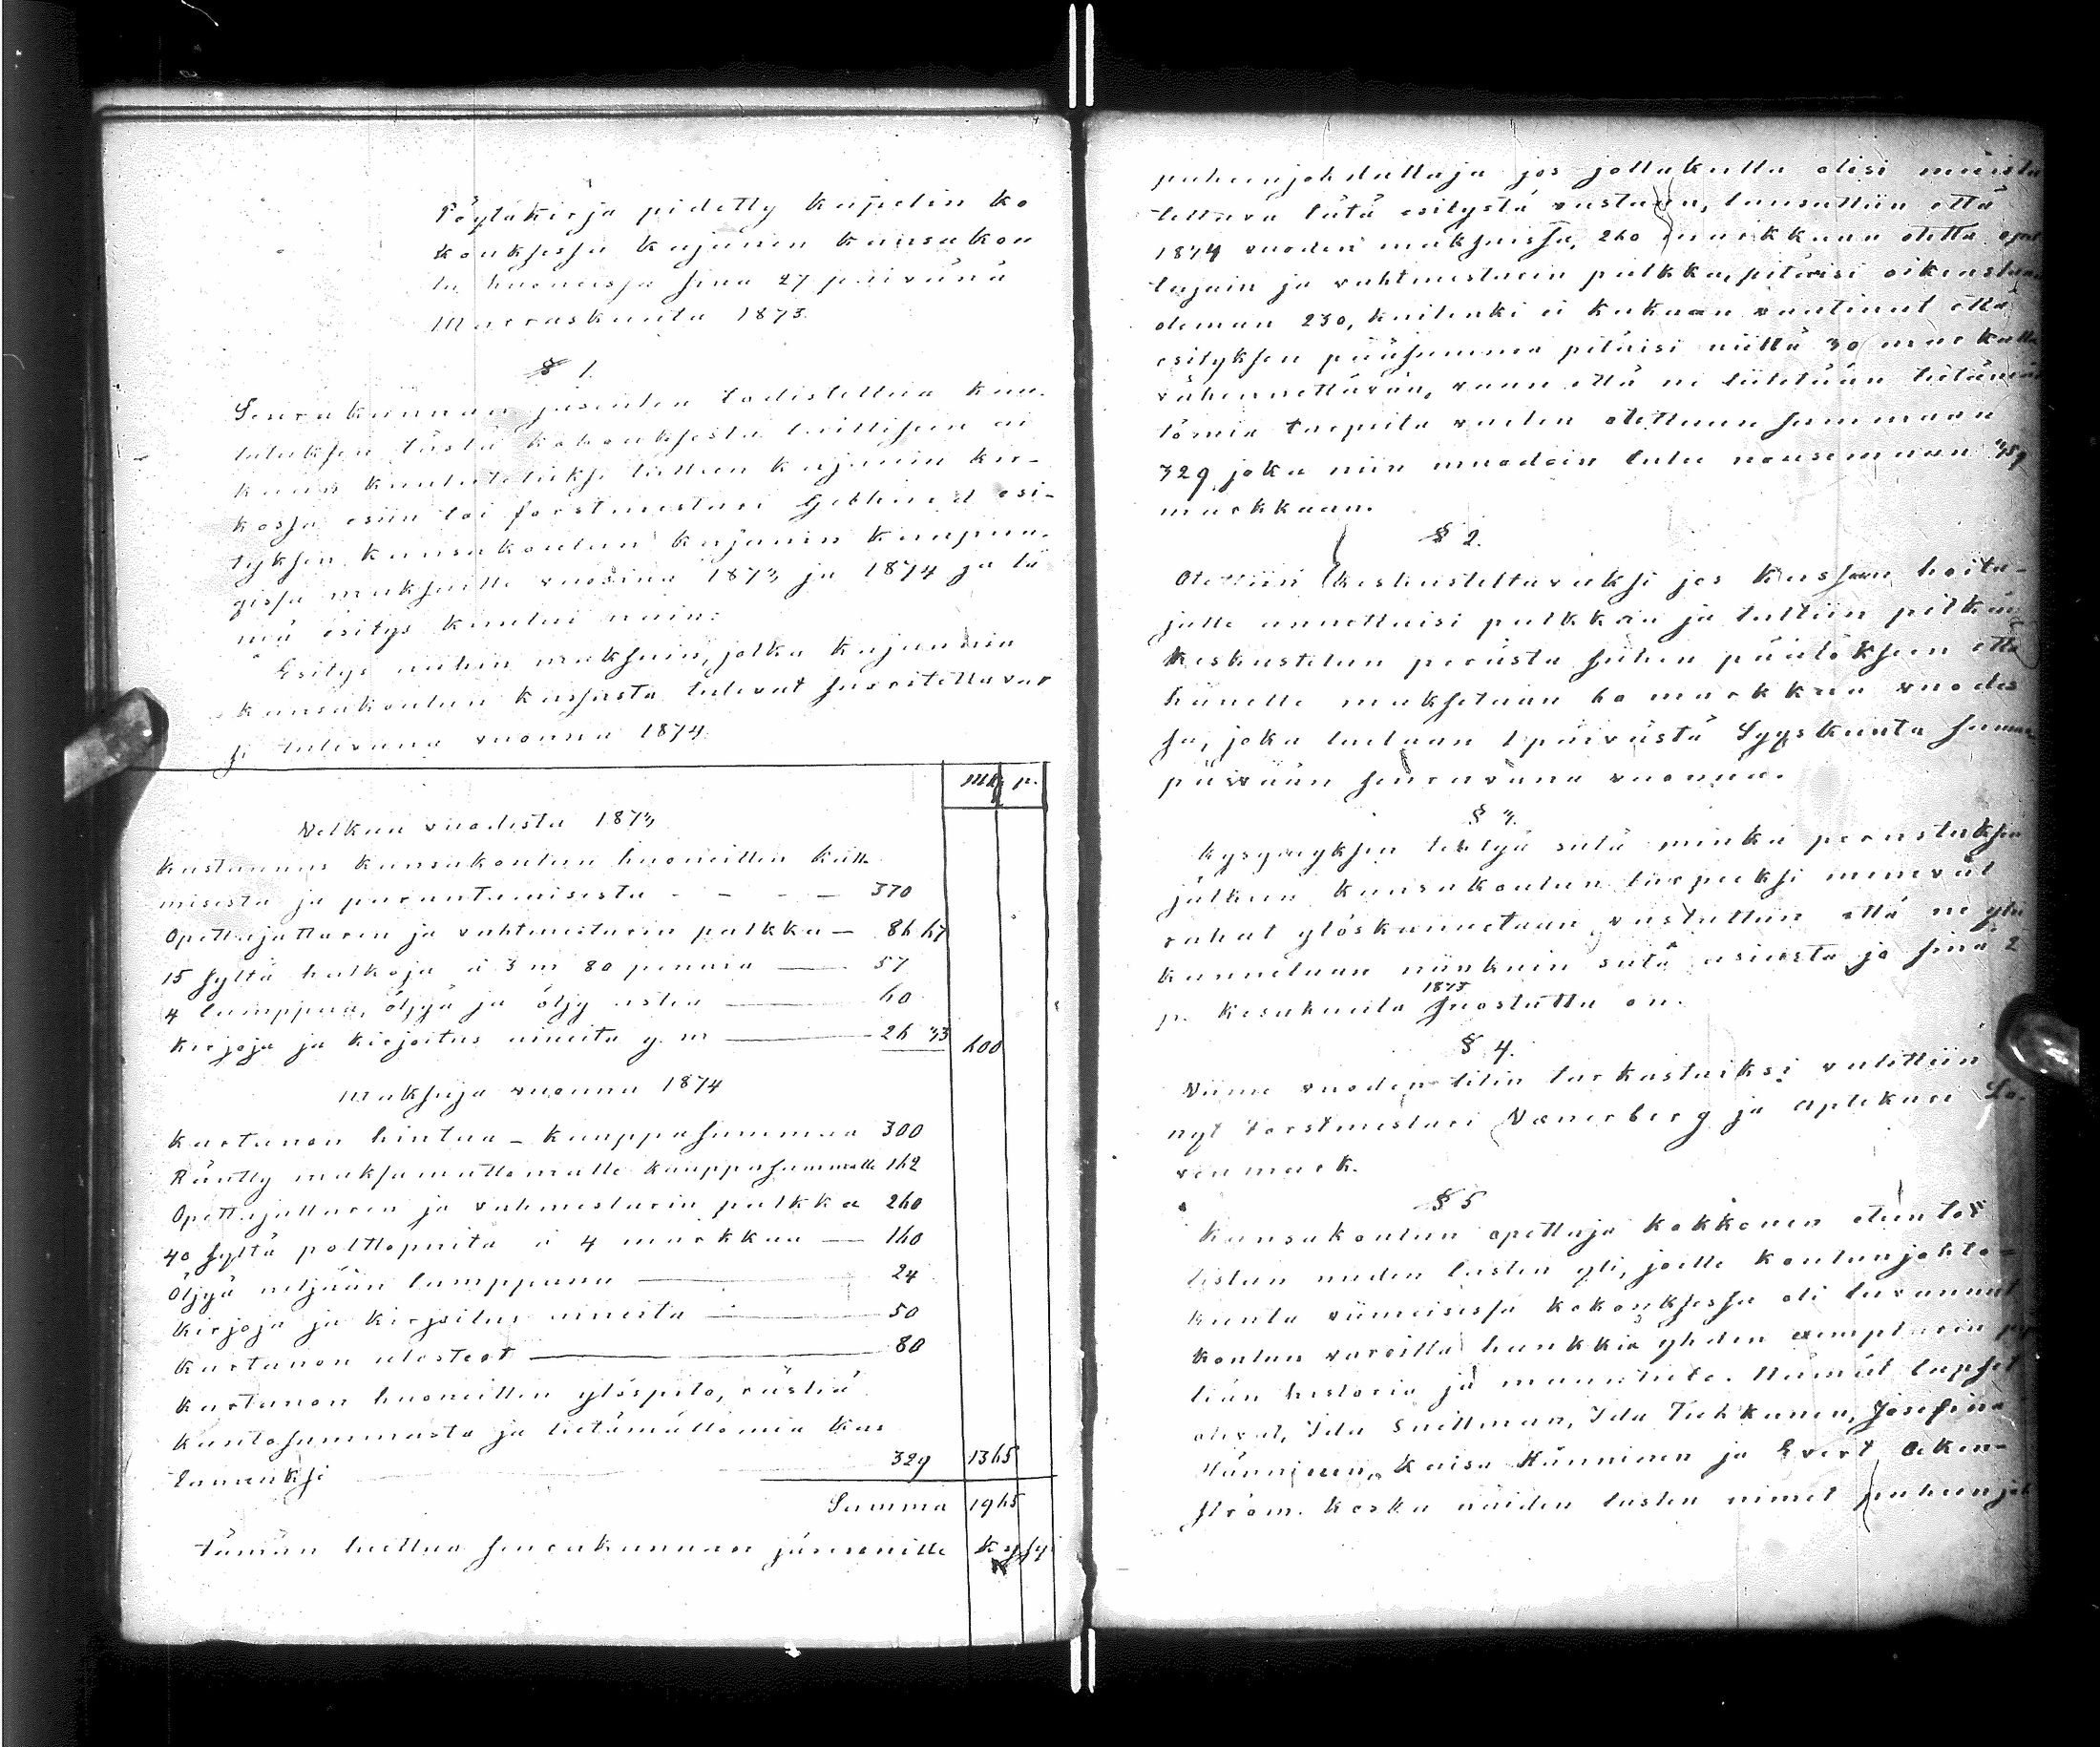 Pöytäkirja pidetty kapelin ko
kouksessa Kajanin kansakou
lu huoneissa sinä 27 päivänä
Marraskuuta 1873.
§ 1.
Seurakunnan jäsenten todistettua kuu-
lutuksen tästä kokouksesta
kuulutetuksi tulleen Kajanin kir-
kossa esiin toi forstmestari esi-
tyksen kansakoulun Kajanin kaupun-
gissa maksuille vuosina 1873 ja 1874 ja tä
mä esitys kuului näin:
Esitys niihin maksuin, jotka Kajanin
kansakoulun kassasta tulevat suoritettavak
si tulevana vuonna 1874.
Mk p.
Velkaa vuodesta 1873
Kustannus kansakoulun huoneitten kitt
misestä ja parantamisesta - - - 370
Opettajattaren ja vahtmestarin palkka — 86 67
15 syltä halkoja a 3 m 80 penniä — 57
4 lamppua, öljyä ja öljy astia — 60
Kirjoja ja kirjoitus aineita y. m — 26 33 600
Maksuja vuonna 1874
Kartanon hintaa - kauppasummaa 300
Räntty maksamattomalle kauppasummalle 162
Opettajattaren ja vahmestarin palkka 260
40 syltä polttopuita a 4 markkaa — 160
Öljyä neljään lamppuun — 24
Kirjoja ja kirjoitus aineita — 50
Kartanon ulosteot — 80
Kartanon huoneitten ylöspito, rästiä
kuntosummasta ja tietämättömiä kus
tannuksi 329 1365
Summa 1965
Tämän luettua seurakunnan jäsenille kysyi
puheenjohdattaja jos jollakulla olisi muistu
tettava tätä esitystä vastaan, lausuttiin että
1874 vuoden maksuissa, 260 markkaan otettu opet
tajain ja vahtmestarin palkka, pitäisi oikeastaan
oleman 230, kuitenki ei kukaan vaatinut että
esityksen pääsumma pitäisi niillä 30 markalla
vähennettävän, vaan että ne liitetään tietämät
tömiä tarpeita varten otettuun summaan
329 joka niin muodoin tulee nousemaan 359
markkaan.
§ 2.
Otettiin keskusteltavaksi jos kassan hoita-
jalle annettaisi palkkaa ja tultiin pitkän
keskustelun perästä siihen päätökseen että
hänelle maksetaan 60 markkaa vuodes
sa, joka luetaan 1 päivästä Syyskuuta samaan
päivään seuraavana vuonna.
§ 3.
Kysymyksen tehtyä siitä minkä perustuksen
jälkeen kansakoulun tarpeeksi menevät
rahat ylöskannetaan, vastattiin että ne ylö
kannetaan niinkuin siitä asiasta jo sinä 2
p. Kesäkuuta 1873 suostuttu on.
§ 4.
Viime vuoden tilin tarkastaiksi valittiin
nyt forstmestari Wænerberg ja Aptekari Lö-
venmark.
§ 5
Kansakoulun opettaja Kokkonen otti
listan niiden lasten yli, joille koulunjohto-
kunta viimeisessä kokouksessa oli luvannut
koulun varoilla hankkia yhden exemplarin
tiän historia ja maantiede. Nämät lapset
olivat, Ida Snellman, Ida Tuhkanen, Josefiina
Hänninen, Kaisa Hänninen ja Evert Åken-
ström. Koska näiden lasten nimet puheenjoh